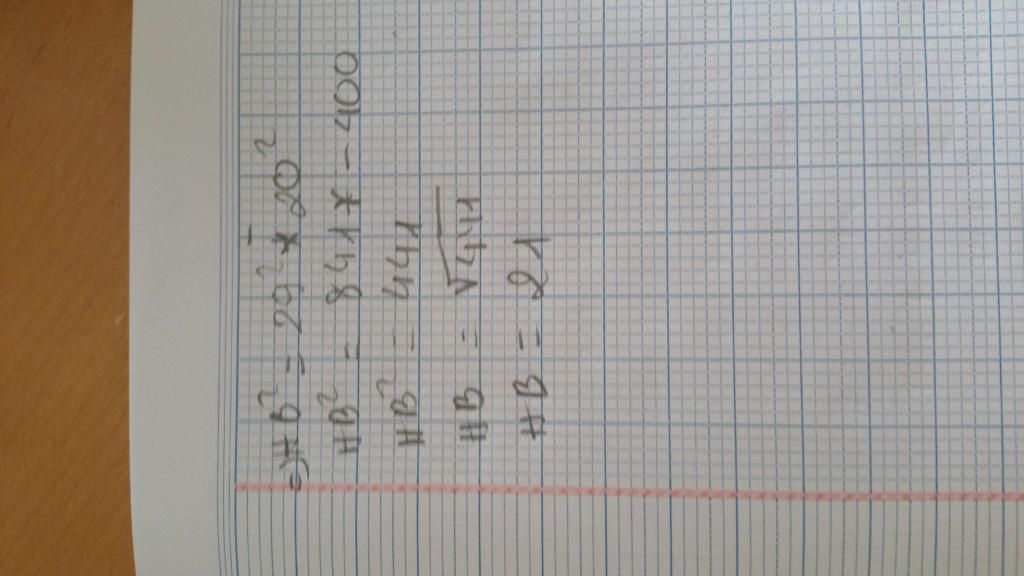 => HB² = 29² - 20²
HB² = 841 - 400
HB² = 441
HB = √441
HB = 21